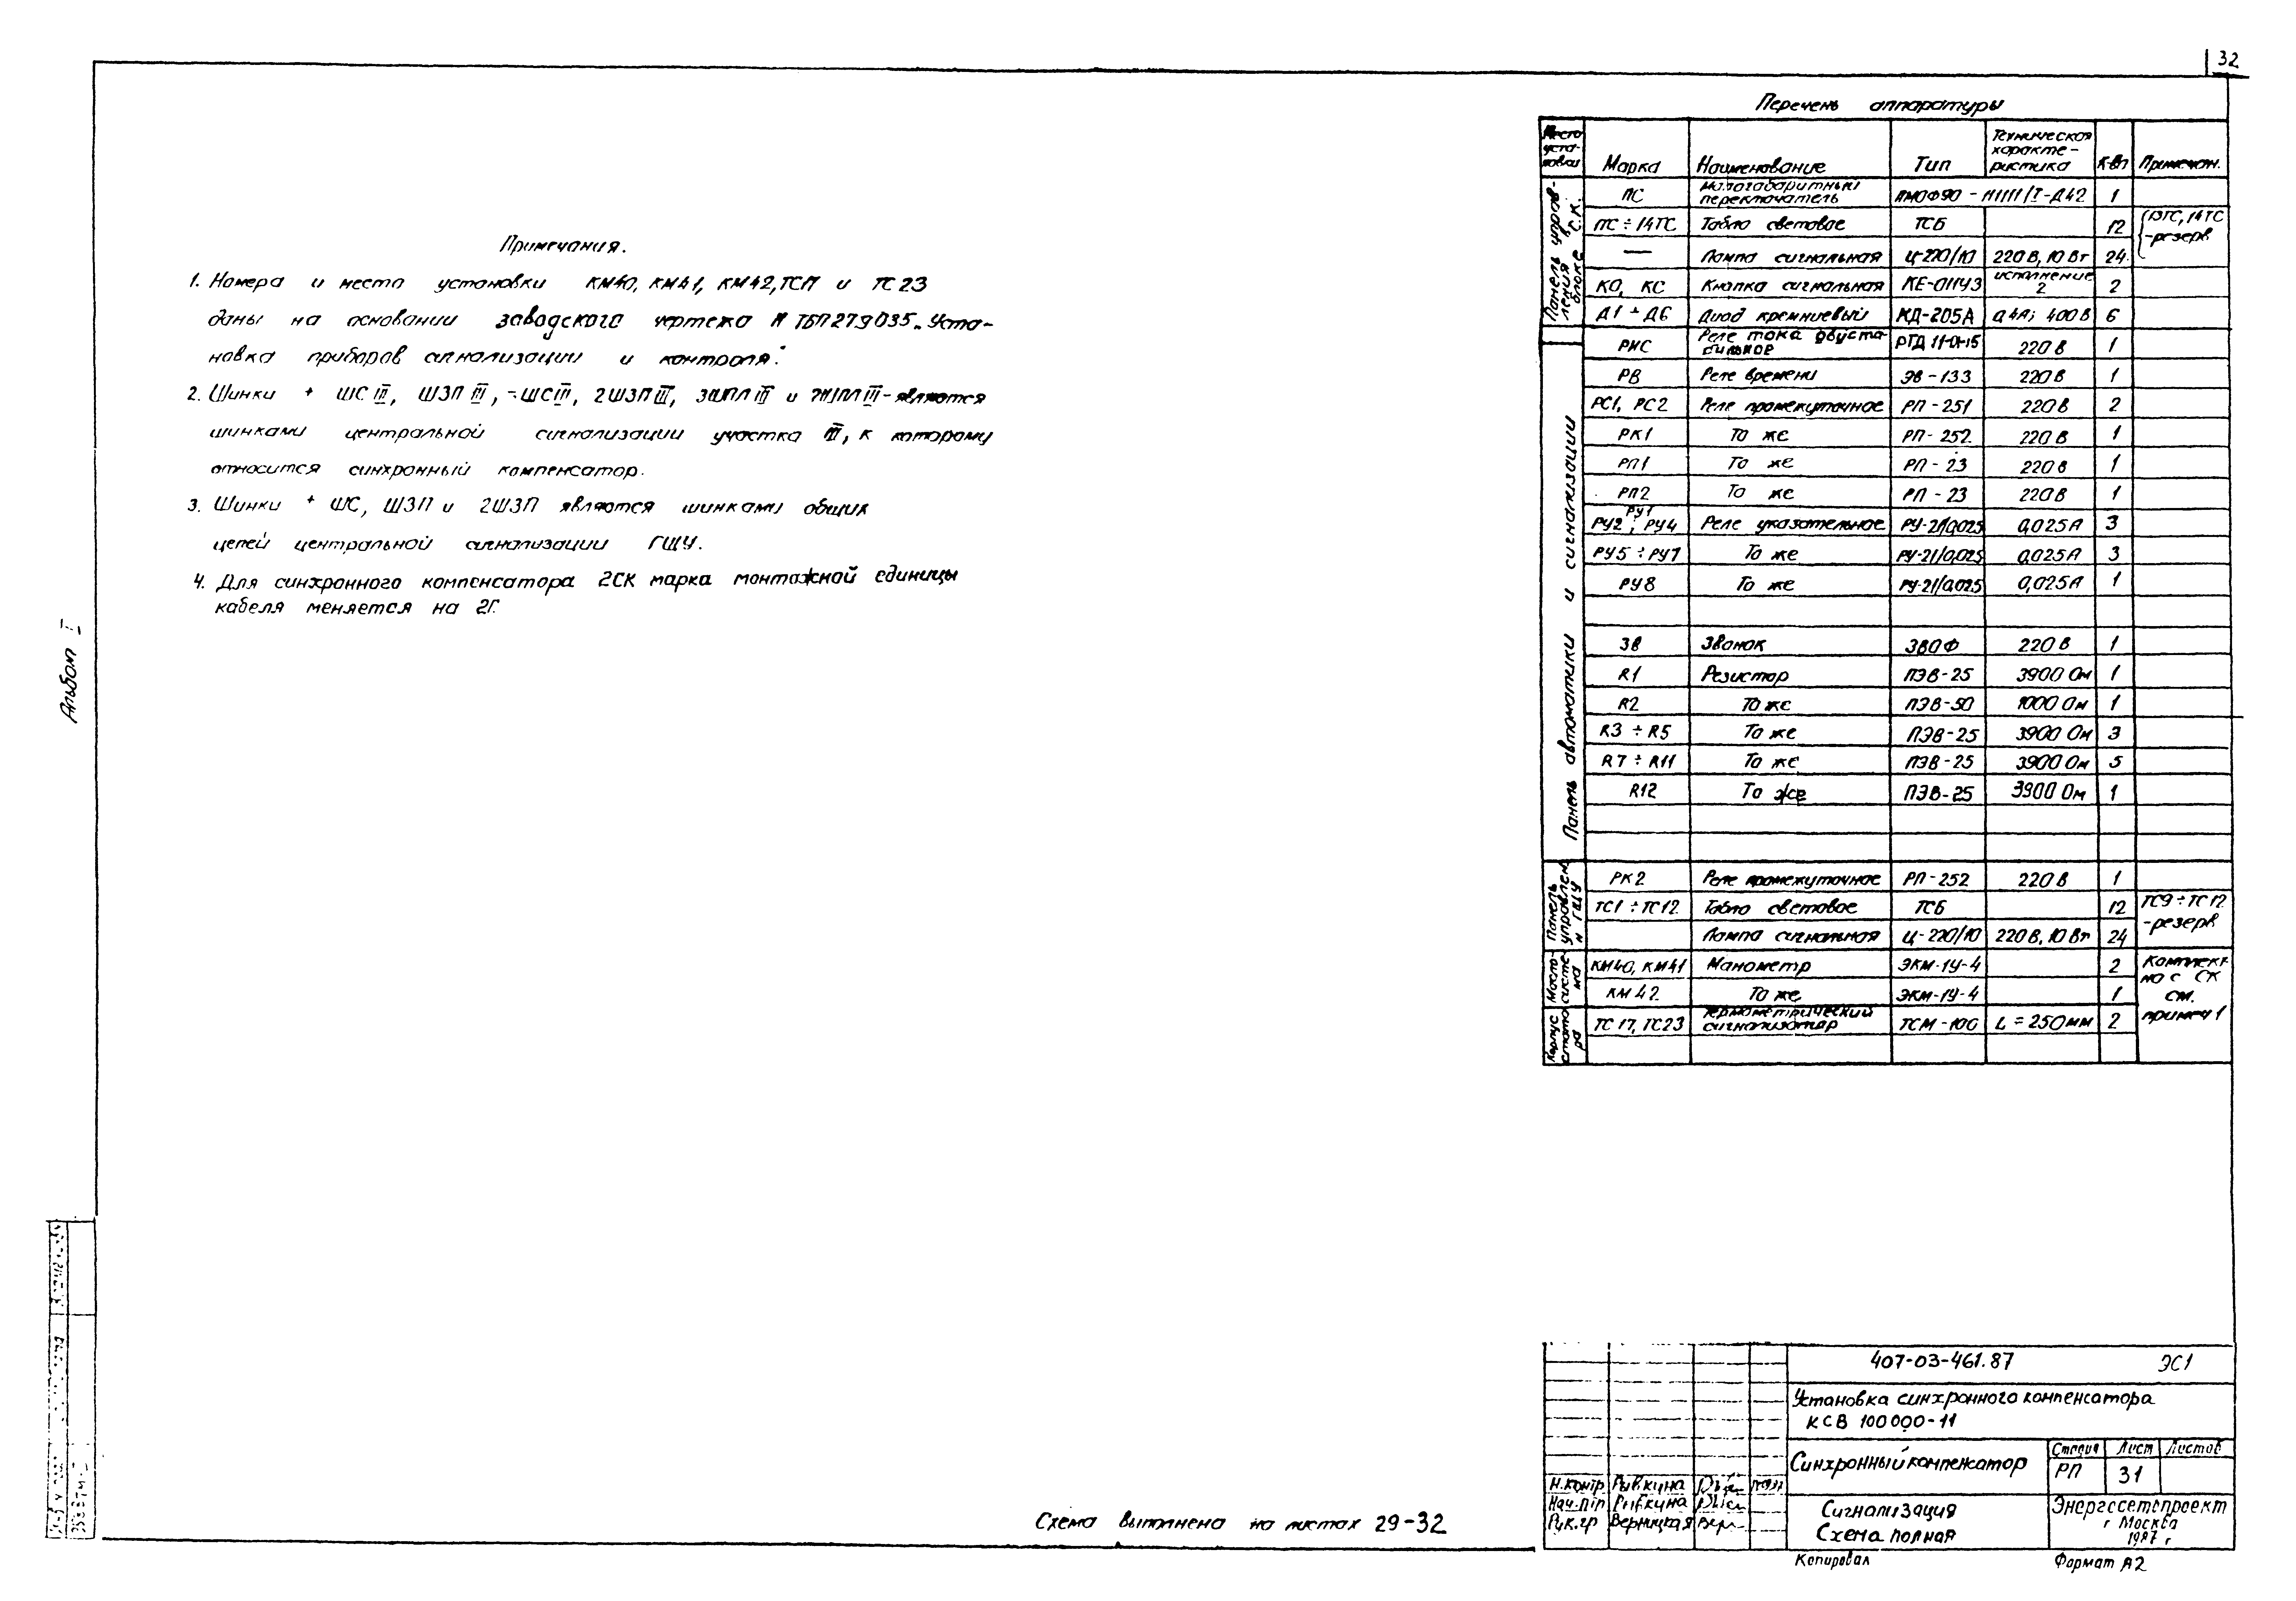 32
Примечания.
1. Номера и место установки КМ40, КМ41, КМ42, ТС17 и ТС23
даны на основании заводского чертежа N ТБП279035 „Уста-
новка приборов сигнализации и контроля."
2. Шинки + ШС III, ШЗП III, -ШС III, 2ШЗП III, III и III - являются
шинками центральной сигнализации участка III, к которому
относится синхронный компенсатор.
3. Шинки + ШС, ШЗП и 2ШЗП являются шинками общих
цепей центральной сигнализации ГЩУ.
4. Для синхронного компенсатора 2СК марка монтажной единицы
кабеля меняется на 2Г.
Альбом I
Перечень аппаратуры
Место уста- новки Марка Наименование Тип Техническая характе- ристика К-во Примечан.
Панель управ- ления в блоке С.К.
ПС Малогабаритный переключатель ПМОФ90 - 111111/I-Д42 1
ТС ÷ 14ТС Табло световое ТСБ 12 (13ТС, 14ТС -резерв
— Лампа сигнальная Ц-220/10 220 В, 10 Вт 24
КО, КС Кнопка сигнальная КЕ-011У3 исполнение 2 2
Д1 ÷ Д6 Диод кремниевый КД-205А 0,4А; 400 В 6
Панель автоматики и сигнализации
РИС Реле тока двуста- бильное РТД 11-01-15 220 В 1
РВ Реле времени ЭВ-133 220 В 1
РС1, РС2 Реле промежуточное РП-251 220 В 2
РК1 То же РП-252 220 В 1
РП1 То же РП-23 220 В 1
РП2 То же РП-23 220 В 1
РУ1 РУ2 ; РУ4 Реле указательное РУ-21/0,025 0,025А 3
РУ5 ÷ РУ7 То же РУ-21/0,025 0,025А 3
РУ8 То же РУ-21/0,025 0,025А 1
ЗВ Звонок ЗВОФ 220 В 1
R1 Резистор ПЭВ-25 3900 Ом 1
R2 То же ПЭВ-50 1000 Ом 1
R3 ÷ R5 То же ПЭВ-25 3900 Ом 3
R7 ÷ R11 То же ПЭВ-25 3900 Ом 5
R12 То же ПЭВ-25 3900 Ом 1
Панель управлен. ГЩУ
РК2 Реле промежуточное РП-252 220 В 1
ТС1 ÷ ТС12 Табло световое ТСБ 12 ТС9 ÷ ТС12 -резерв
Лампа сигнальная Ц-220/10 220 В, 10 Вт 24
Масло- систе- ма
КМ40, КМ41 Манометр ЭКМ-1У-4 2 Комплект- но с СК см. примеч 1
КМ42 То же ЭКМ-1У-4 1
Корпус стато- ра
ТС17, ТС23 Термометрический сигнализатор ТСМ-100 L = 250мм 2
Схема выполнена на листах 29-32
407-03-461.87 ЭС1
Установка синхронного компенсатора
КСВ 100000-11
Синхронный компенсатор
Стадия Лист Листов
РП 31
Н.контр. Рывкина
Нач.ПТП Рывкина
Рук.гр Верницкая
Сигнализация
Схема полная
Энергосетьпроект
г Москва
1987 г
Копировал Формат А2